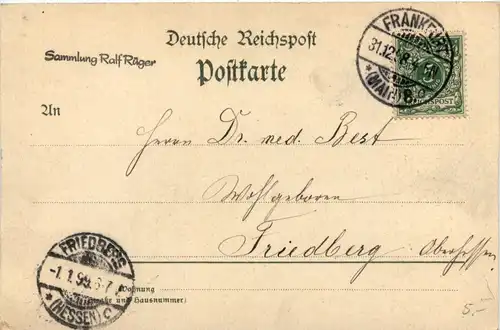 Deutsche Reichspost
Sammlung Ralf Räger
Postkarte
FRANKFURT
31.12.98.
(MAIN)
An
Herrn Dr. med. Best
Wohlgeboren
Friedberg Oberhessen
FRIEDBERG
-1.1.99.6-7
*(HESSEN)C
Wohnung
und Hausnummer)
5.-